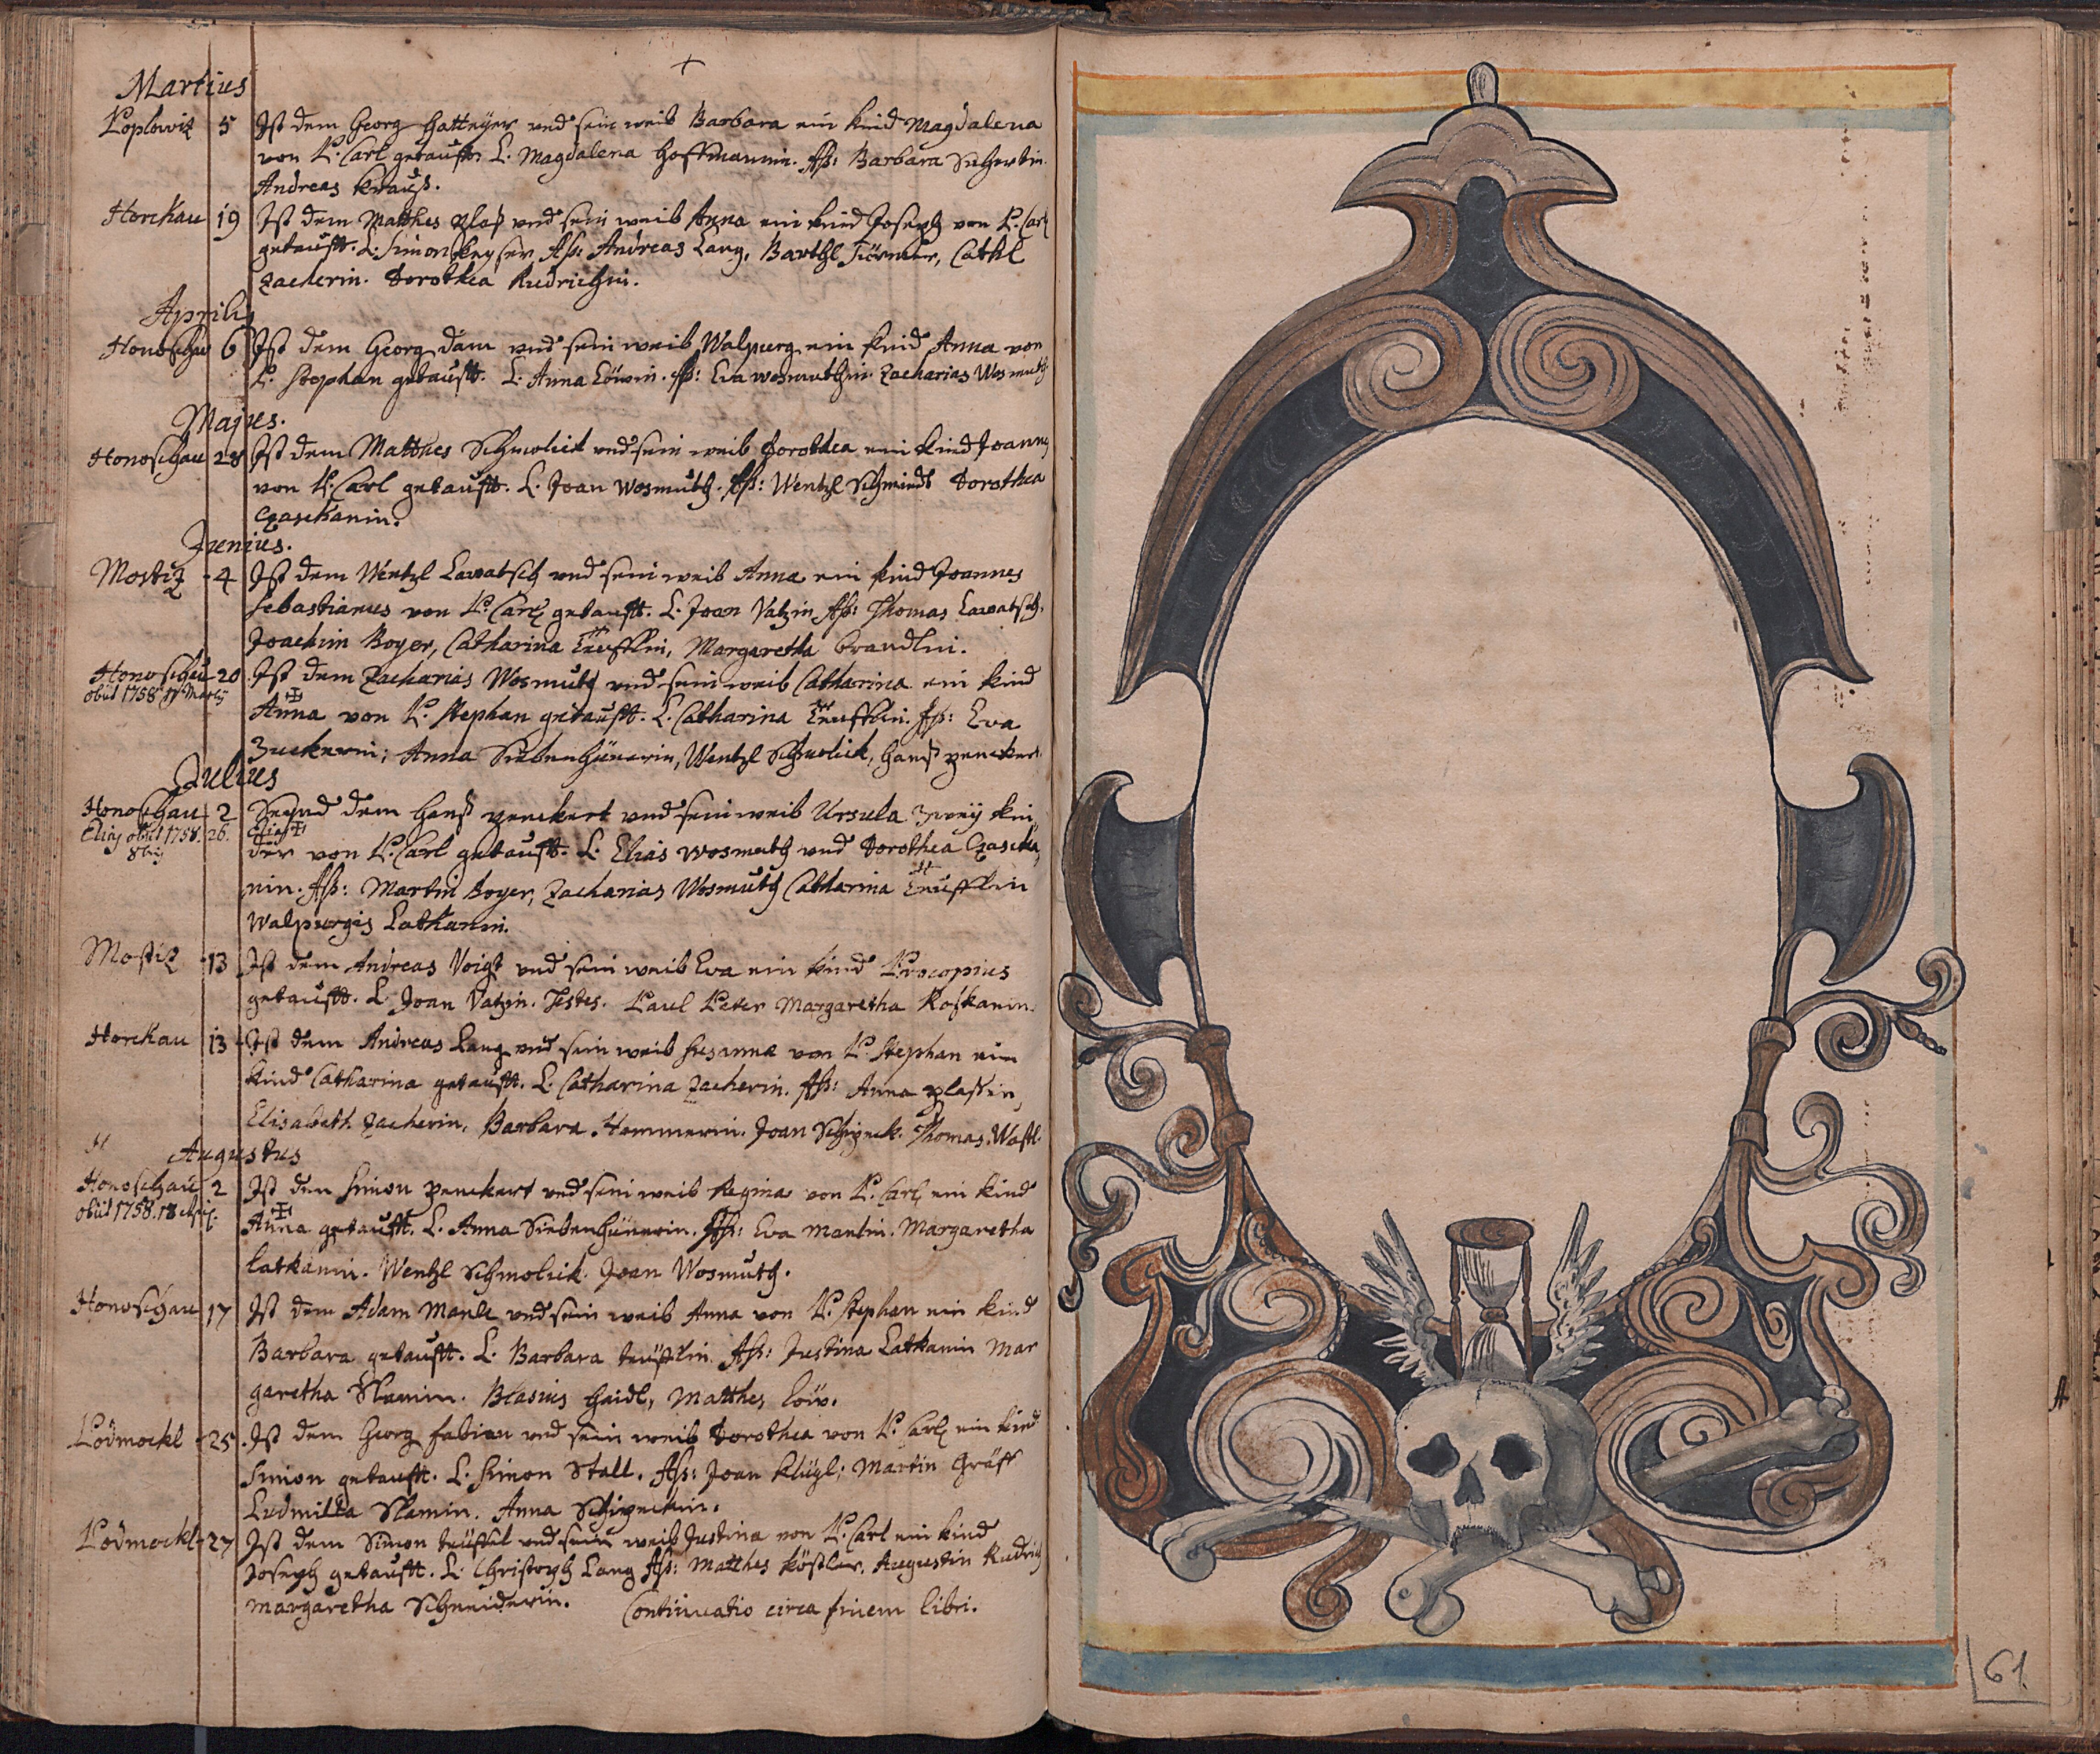 Martius
Koplowiz 5 Ist dem Georg Hattnyer und sein weib Barbara ein kind Magdalena
von P. Carl getaufft. L. Magdalena Hoffmannin. Ass: Barbara
Andreas Krauß.
Horckau 19 Ist dem Matthes Plaß und sein weib Anna ein kind Joseph von P. Carl
getaufft. L. Simon Keyser Ass: Andreas Lang, Barthl Cathl
Zacherin. Dorothea Rudrichin.
Aprilis
Honoschau 6 Ist dem Georg Däm und sein weib Walpurg ein kind Anna von
P. Stephan getaufft. L. Anna Löwin. Ass: Eva Wosmuthin. Zacharias Wosmuth
Majus.
Honoschau 28 Ist dem Matthes Schmolick und sein weib Dorothea ein kind Joannes
von P. Carl getaufft. L. Joan Wosmuth. Ass: Wentzl Schmidt Dorothea
Czaschanin.
Junius.
Mostiz 4 Ist dem Wentzl Lawatsch und sein weib Anna ein kind Joannes
Sebastianus von P. Carl getaufft. L. Joan Vatzin Ass: Thomas Lawatsch.
Joachim Boyer, Catharina Teufflin, Margaretha Brandlin.
Honoschau 20. Ist dem Zacharias Wosmuth und sein weib Catharina ein kind
obiit 1758 Martij
Anna von P. Stephan getaufft. L. Catharina Teufflin. Ass: Eva
Zuckerin; Anna Siebenhünerin, Wentzl Schmolick, Hanß Penckert
Julius
Honoschau 2 Seynd dem Hanß Penckert und sein weib Ursula zwey kin
Elias obiit 1758. 26. Elias
8bris
der von P. Carl getaufft. L. Elias Wosmuth und Dorothea Czascka
nin. Ass: Martin Boyer, Zacharias Wosmuth Catharina Teufflin
Walpurgis Latkanin.
Mostiz 13 Ist dem Andreas Voigt und sein weib Eva ein kind Procopius
getaufft. L. Joan Vatzin. Testes. Paul Peter Margaretha Koskanin.
Horckau 13 Ist dem Andreas Lang und sein weib Susanna von P. Stephan ein
kind Catharina getaufft. L. Catharina Zacherin. Ass: Anna Plassin,
Elisabeth Zacherin, Barbara Hammerin. Joan Schipeck. Thomas Wastl.
Augustus
Honoschau 2 Ist dem Simon Penckert und sein weib Regina von P. Carl ein kind
obiit 1758. 18
Anna getaufft. L. Anna Siebenhünerin. Ass: Eva Mantin. Margaretha
Latkanin. Wentzl Schmolick. Joan Wosmuth.
Honoschau 17 Ist dem Adam Manll und sein weib Anna von P. Stephan ein kind
Barbara getaufft. L. Barbara teufflin. Ass: Justina Latkanin Mar
garetha Slamin. Blasius Haidl, Matthes Löw.
Podmockl 25. Ist dem Georg Fabian und sein weib Dorothea von P. Carl ein kind
Simon getaufft. L. Simon Stall. Ass: Joan Klügl; Martin Gräff
Ludmilla Slamin. Anna Schipeckin.
Podmockl 27 Ist dem Simon teuffel und sein weib Justina von P. Carl ein kind
Joseph getaufft. L. Christoph Lang Ass: Matthes Köstler, Augustin Rudrich
Margaretha Schneiderin. Continuatio circa finem libri.
61.